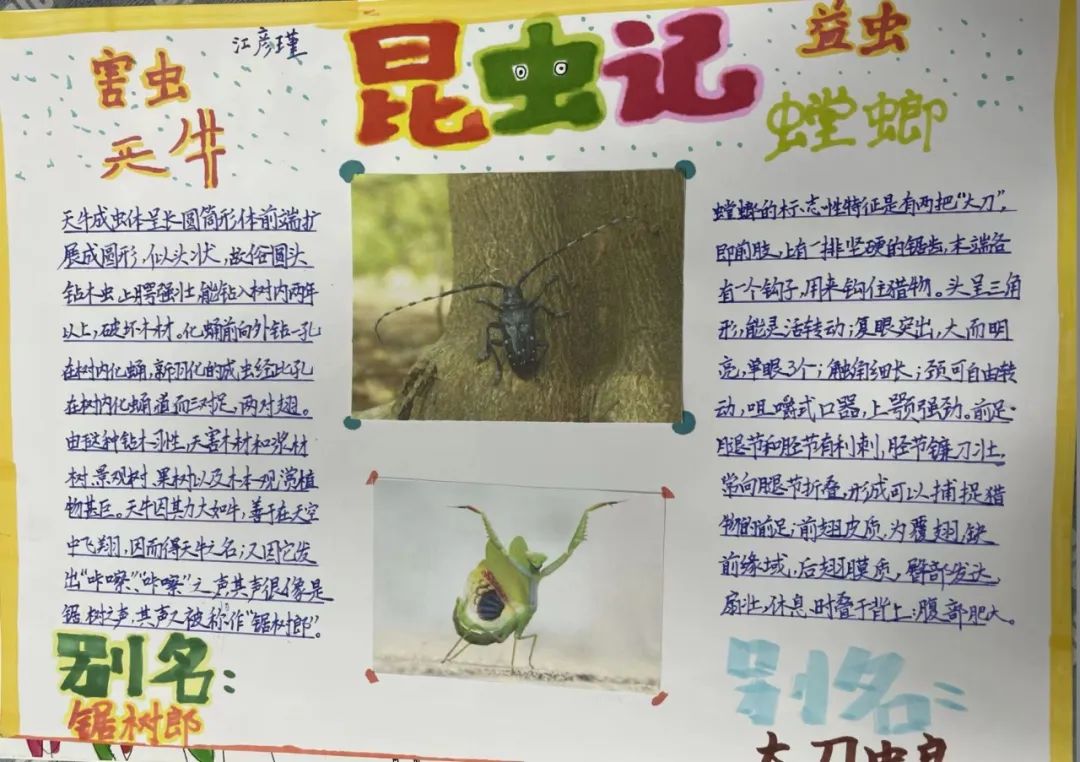 江彦瑾
昆虫记
害虫
天牛
天牛成虫体呈长圆筒形体前端扩
展成圆形,似头状,故俗圆头
钻木虫,上腭强壮,能钻入树内两年
以上,破坏木材。化蛹前向外钻一孔
在树内化蛹,新羽化的成虫经此孔
在树内化蛹道而三对足,两对翅。
由于这种钻木习性,天害木材和浆材
树、景观树、果树以及木本观赏植
物甚巨。天牛因其力大如牛,善于在天空
中飞翔,因而得天牛之名;又因它发
出“咔嚓”、“咔嚓”之声,其声很像是
锯树之声,其声又被称作“锯树郎”。
别名:
锯树郎
益虫
螳螂
螳螂的标志性特征是有两把“大刀”,
即前肢,上有一排坚硬的锯齿,末端各
有一个钩子,用来钩住猎物。头呈三角
形,能灵活转动;复眼突出,大而明
亮,单眼3个;触角细长;颈可自由转
动,咀嚼式口器,上颚强劲。前足
腿节和胫节有利刺,胫节镰刀壮,
常向腿节折叠,形成可以捕捉猎
物的前足;前翅皮质,为覆翅,缺
前缘域,后翅膜质,臀部发达,
扇壮,休息时叠于背上;腹部肥大。
别名:
大刀